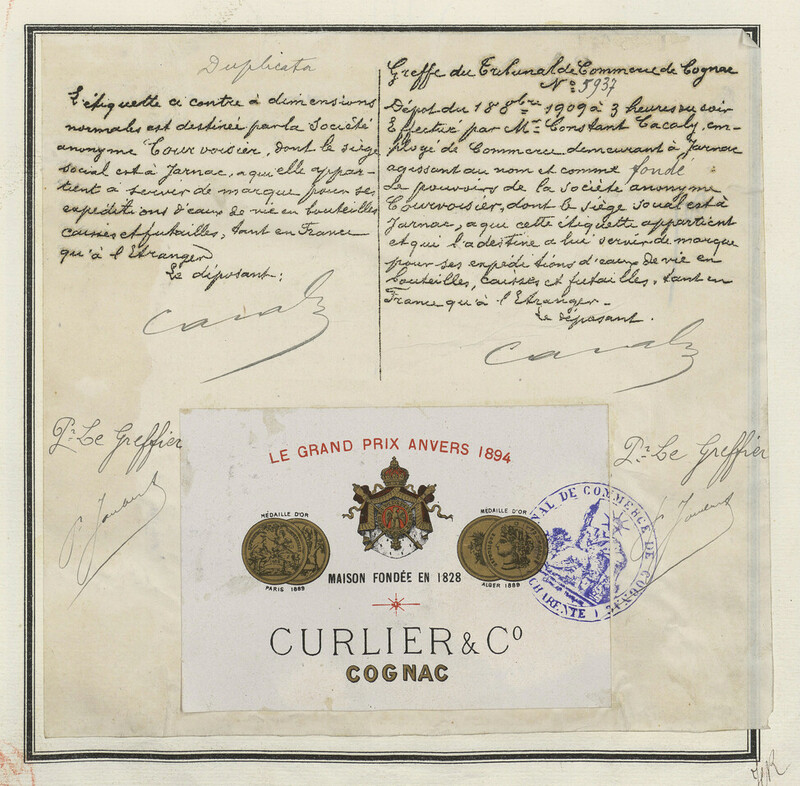 Duplicata
L'étiquette ci contre à dimensions
normales est destinée par la Société
anonyme Courvoisier, dont le siège
social est à Jarnac, à qui elle appar-
tient à servir de marque pour ses
expéditions d'eaux de vie en bouteilles
caisses et futailles, tant en France
qu'à l'Etranger
Le déposant:
Cacaly
Greffe du Tribunal de Commerce de Cognac
No 5937
Dépôt du 18 8bre 1909 à 3 heures du soir
Effectué par Mr Constant Cacaly, em-
ployé de Commerce demeurant à Jarnac
agissant au nom et comme fondé
de pouvoirs de la Société anonyme
Courvoisier, dont le siège social est à
Jarnac, a qui cette étiquette appartient
et qui l'a destine a lui servir de marque
pour ses expéditions d'eaux de vie en
bouteilles, caisses et futailles, tant en
France qu'à l'Etranger -
Le déposant.
Cacaly
Pr Le Greffier
Pr Le Greffier
LE GRAND PRIX ANVERS 1894
MÉDAILLE D'OR
PARIS 1889
MÉDAILLE D'OR
ALGER 1889
MAISON FONDÉE EN 1828
CURLIER & Co
COGNAC
TRIBUNAL DE COMMERCE DE COGNAC
CHARENTE